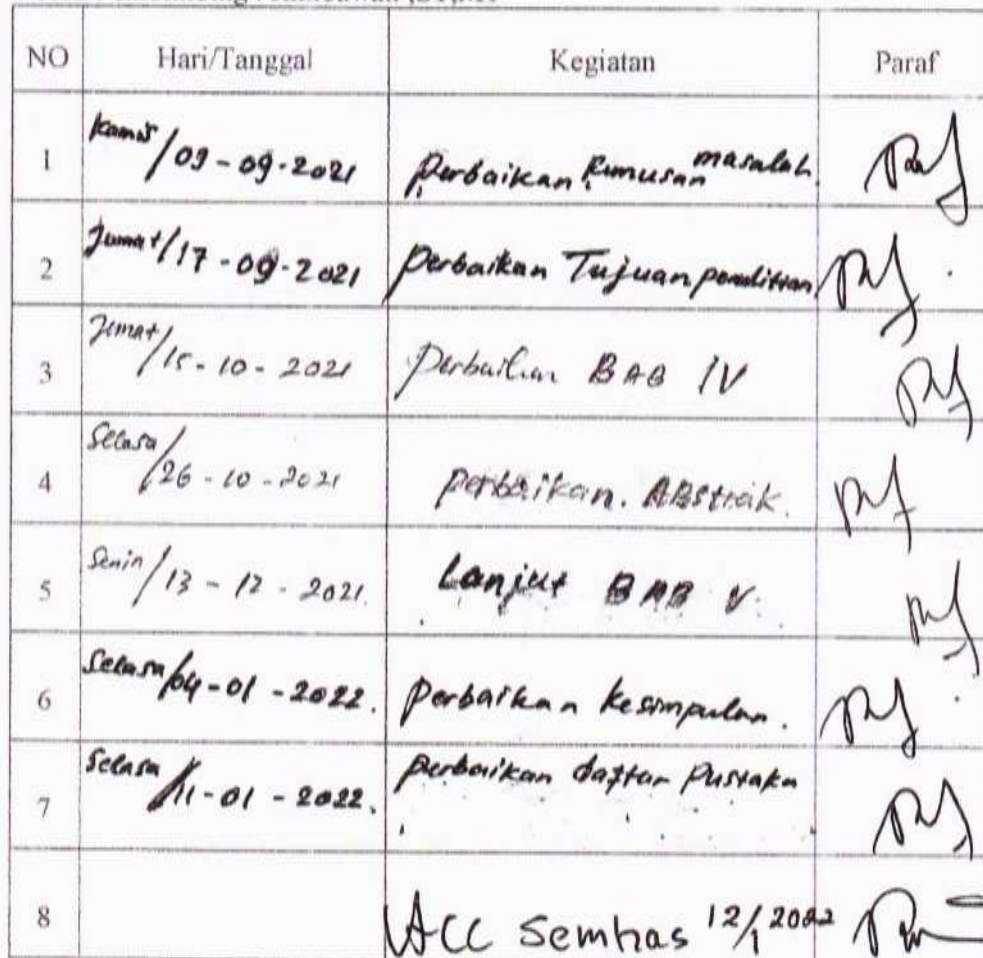 NO Hari/Tanggal Kegiatan Paraf
1 Kamis/09-09-2021 Perbaikan Rumusan masalah.
2 Jumat/17-09-2021 Perbaikan Tujuan penelitian
3 Jumat/15-10-2021 Perbaikan BAB IV
4 Selasa/26-10-2021 Perbaikan. ABstrak.
5 Senin/13-12-2021. Lanjut BAB V.
6 Selasa/04-01-2022. Perbaikan kesimpulan.
7 Selasa/11-01-2022. Perbaikan daftar Pustaka
8 ACC Semhas 12/1 2022